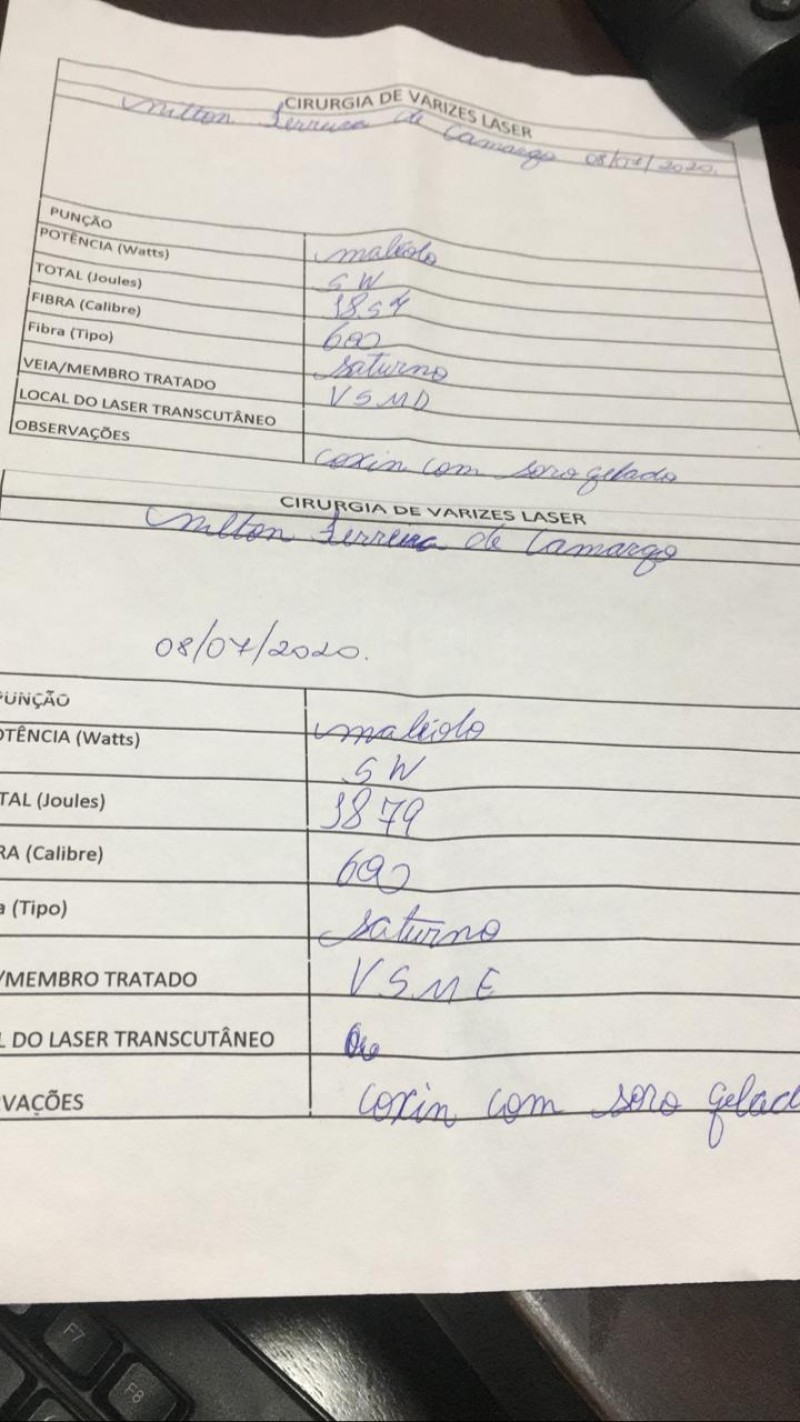 CIRURGIA DE VARIZES LASER
Milton Ferreira de Camargo 08/07/2020.
PUNÇÃO maléolo
POTÊNCIA (Watts) 5W
TOTAL (Joules) 1857
FIBRA (Calibre) 600
Fibra (Tipo) saturno
VEIA/MEMBRO TRATADO VSMD
LOCAL DO LASER TRANSCUTÂNEO
OBSERVAÇÕES coxin com soro gelado
CIRURGIA DE VARIZES LASER
Milton Ferreira de Camargo
08/07/2020.
PUNÇÃO maléolo
OTÊNCIA (Watts) 5W
TAL (Joules) 1879
RA (Calibre) 600
a (Tipo) saturno
/MEMBRO TRATADO VSME
L DO LASER TRANSCUTÂNEO
VAÇÕES coxin com soro gelad
F7
F8